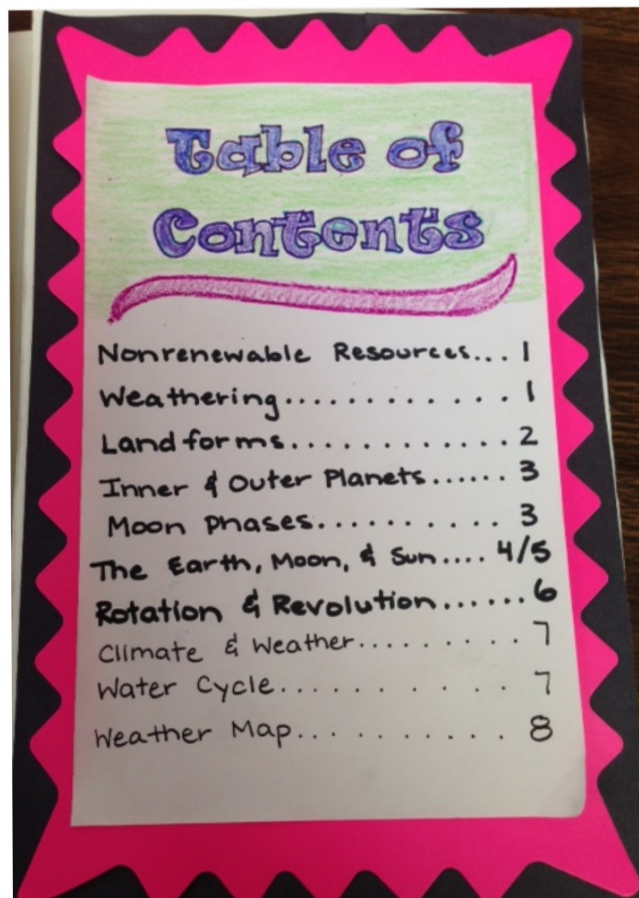 Table of
Contents
Nonrenewable Resources... 1
Weathering............. 1
Landforms............. 2
Inner & Outer Planets...... 3
Moon Phases.......... 3
The Earth, Moon, & Sun.... 4/5
Rotation & Revolution...... 6
Climate & Weather......... 7
Water Cycle............ 7
Weather Map........... 8